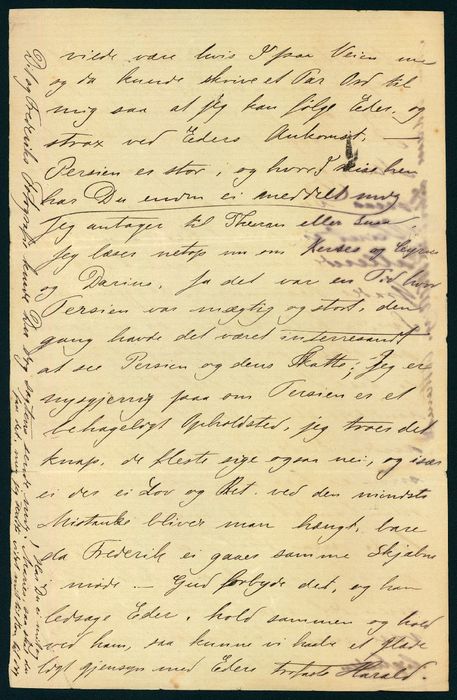 vilde være hvis I paa Veien nu
og da kunde skrive et Par Ord til
mig saa at jeg kan følge Eder, og
strax ved Eders Ankomst, —
Persien er stor, og hvor I reise hen
har Du endnu ei meddelt mig
Jeg antager til Theran eller Susa
Jeg læser netop nu om Xerxes og Cyrus
og Darius, Ja det var en Tid hvor
Persien var mægtig og stort, den
gang havde det været interressant
at see Persien og dens Skatte; Jeg er
nysgjerrig paa om Persien er et
behageligt Opholdsted, jeg troer det
knap, de fleste sige ogsaa nei, og især
ei der ei Lov og Ret. ved den mindste
Mistanke bliver man hængt, bare
da Frederik ei gaaer samme Skjæbne
i møde — Gud forbyde det, og han
ledsage Eder, hold sammen og hold
ved ham, saa kunne vi haabe et glæde
ligt gjensyn med Eders trofaste Harald.
Dit og Frederiks Fotografi kunde Du dog sagtens sende mig